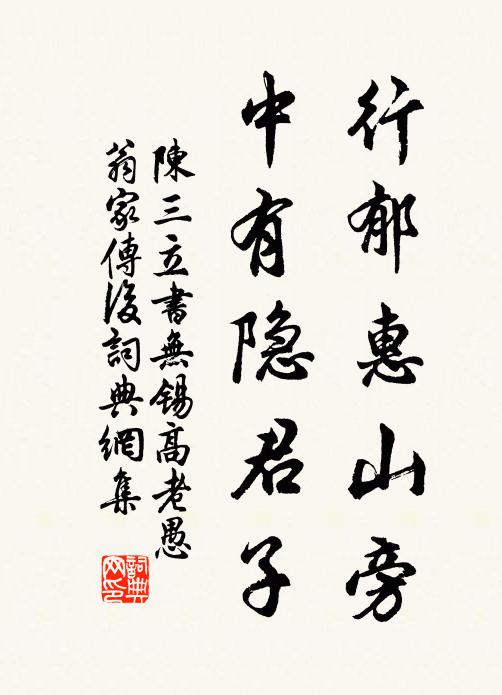 行郁惠山旁
中有隐君子
陳三立書無锡高老愚
翁家傳後詞典網集
詞典網印